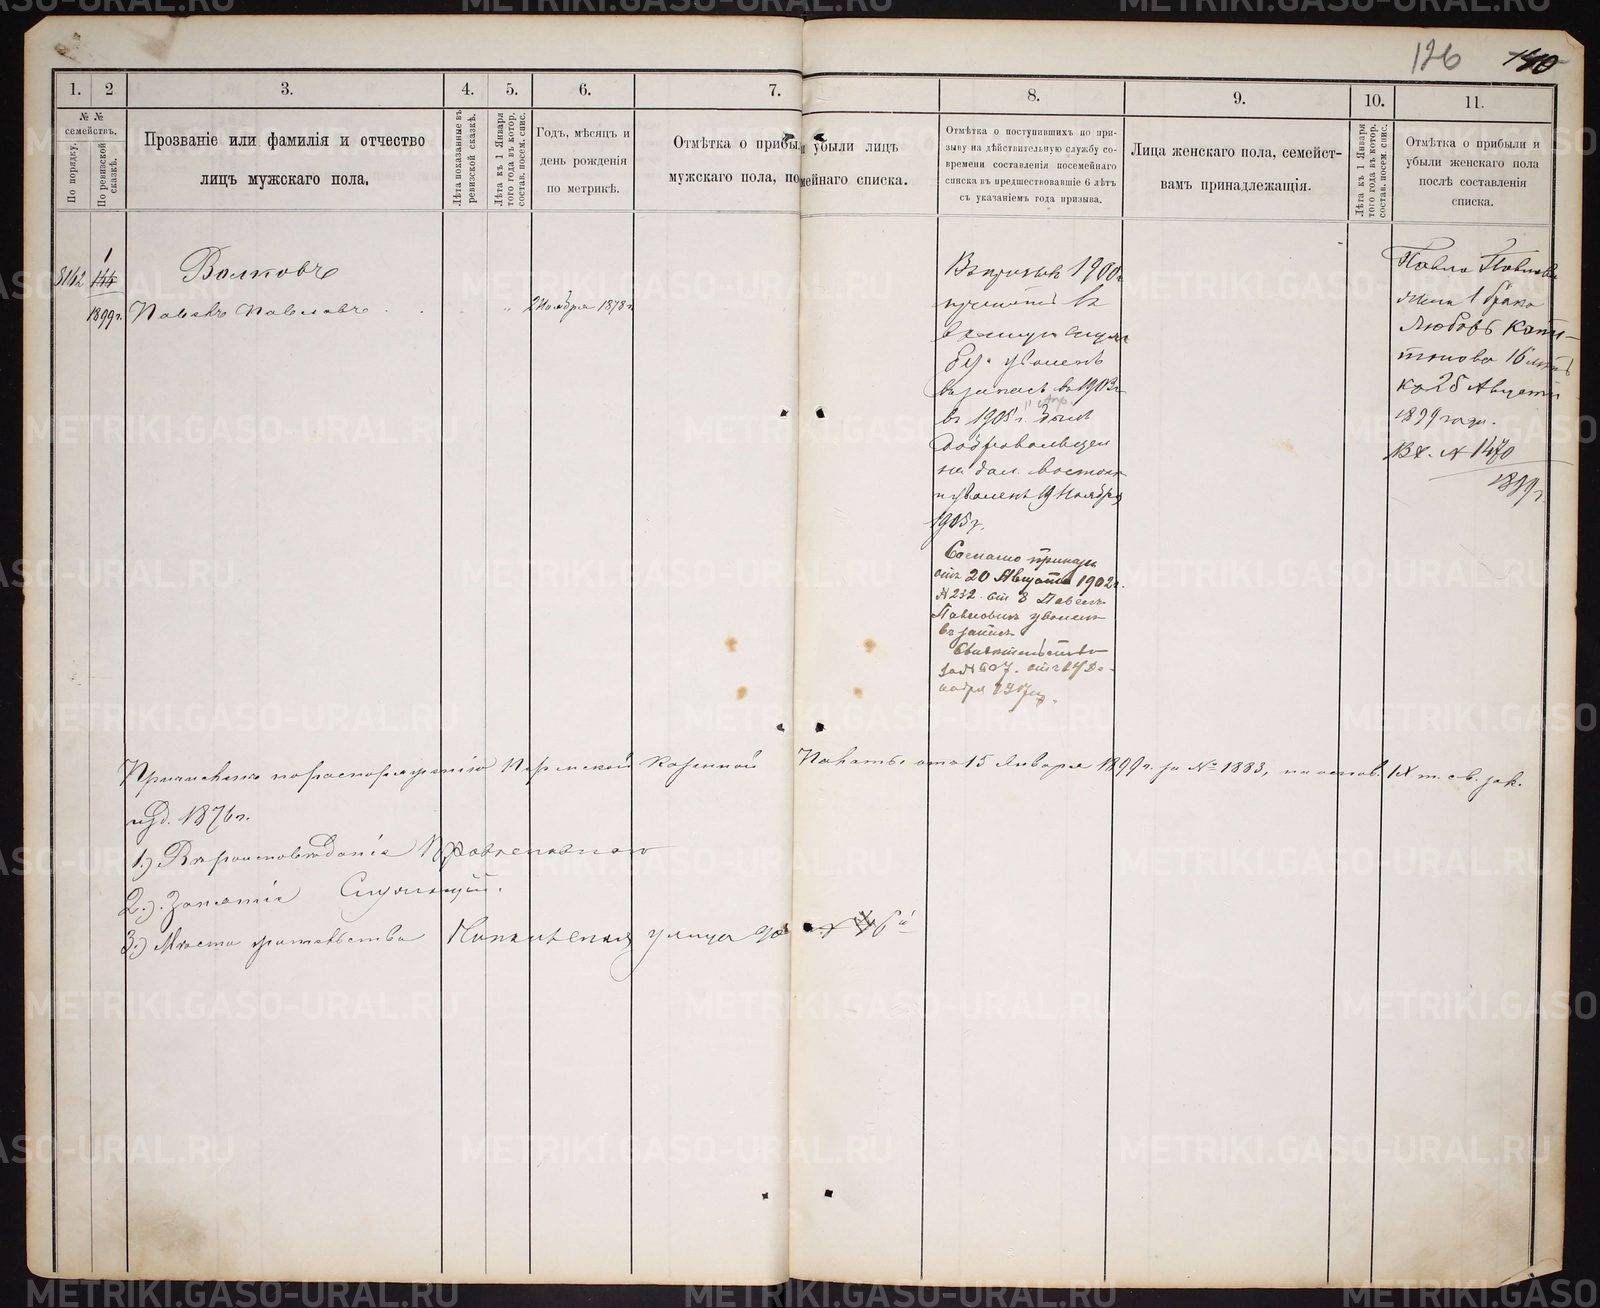 126 140
1. 2 3. 4. 5. 6. 7. 8. 9. 10. 11.
№ №
семействъ.
По порядку.
По ревизской
сказкѣ.
Прозваніе или фамилія и отчество
лицъ мужскаго пола.
Лѣта показанные въ
ревизской сказкѣ.
Лѣта къ 1 Января
того года въ котор.
состав. посем. спис.
Годъ, мѣсяцъ и
день рожденія
по метрикѣ.
Отмѣтка о прибыли и убыли лицъ
мужскаго пола, посемейнаго списка.
Отмѣтка о поступившихъ по при-
зыву на дѣйствительную службу со-
времени составленія посемейнаго
списка въ предшествовавшіе 6 лѣтъ
съ указаніемъ года призыва.
Лица женскаго пола, семейст-
вамъ принадлежащія.
Лѣта къ 1 Января
того года въ котор.
состав. посем. спис.
Отмѣтка о прибыли и
убыли женскаго пола
послѣ составленія
списка.
8162 144
1899г.
Волковъ
Павелъ Павловъ
2 Ноября 1878г
Въ призывъ 1900г
принятъ въ
военную служ
бу. уволенъ
въ запасъ въ 1903г
въ 1905г. былъ
добровольцем
на дал. востоке
и уволенъ 19 Ноября
1905г.
Согласно приказу
отъ 20 Августа 1902г.
№ 232 Павелъ
Павловъ уволенъ
въ запасъ
Свидетельство
за № 607.
Павла Павлова
жена 1 брака
Любовь Капи-
тонова 16 лѣтъ
къ 25 Августа
1899 года.
Вх. № 1470
1899г.
Причисленъ по распоряженію Пермской Казенной Палаты отъ 15 Января 1899г. за № 1883, на основ. IX т. св. зак.
изд. 1876г.
1.) Вѣроисповѣданіе Православнаго
2.) Занятіе Служащій.
3.) Мѣсто жительства улица
METRIKI.GASO-URAL.RU